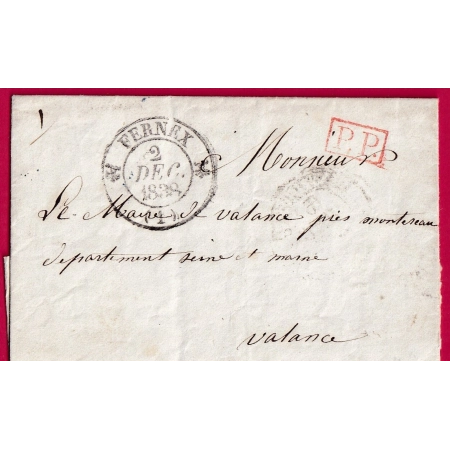 1
FERNEX
2
DEC.
1838
(1)
P.P.
Monsieur
Le Maire de valance près montereau
departement seine et marne
valance